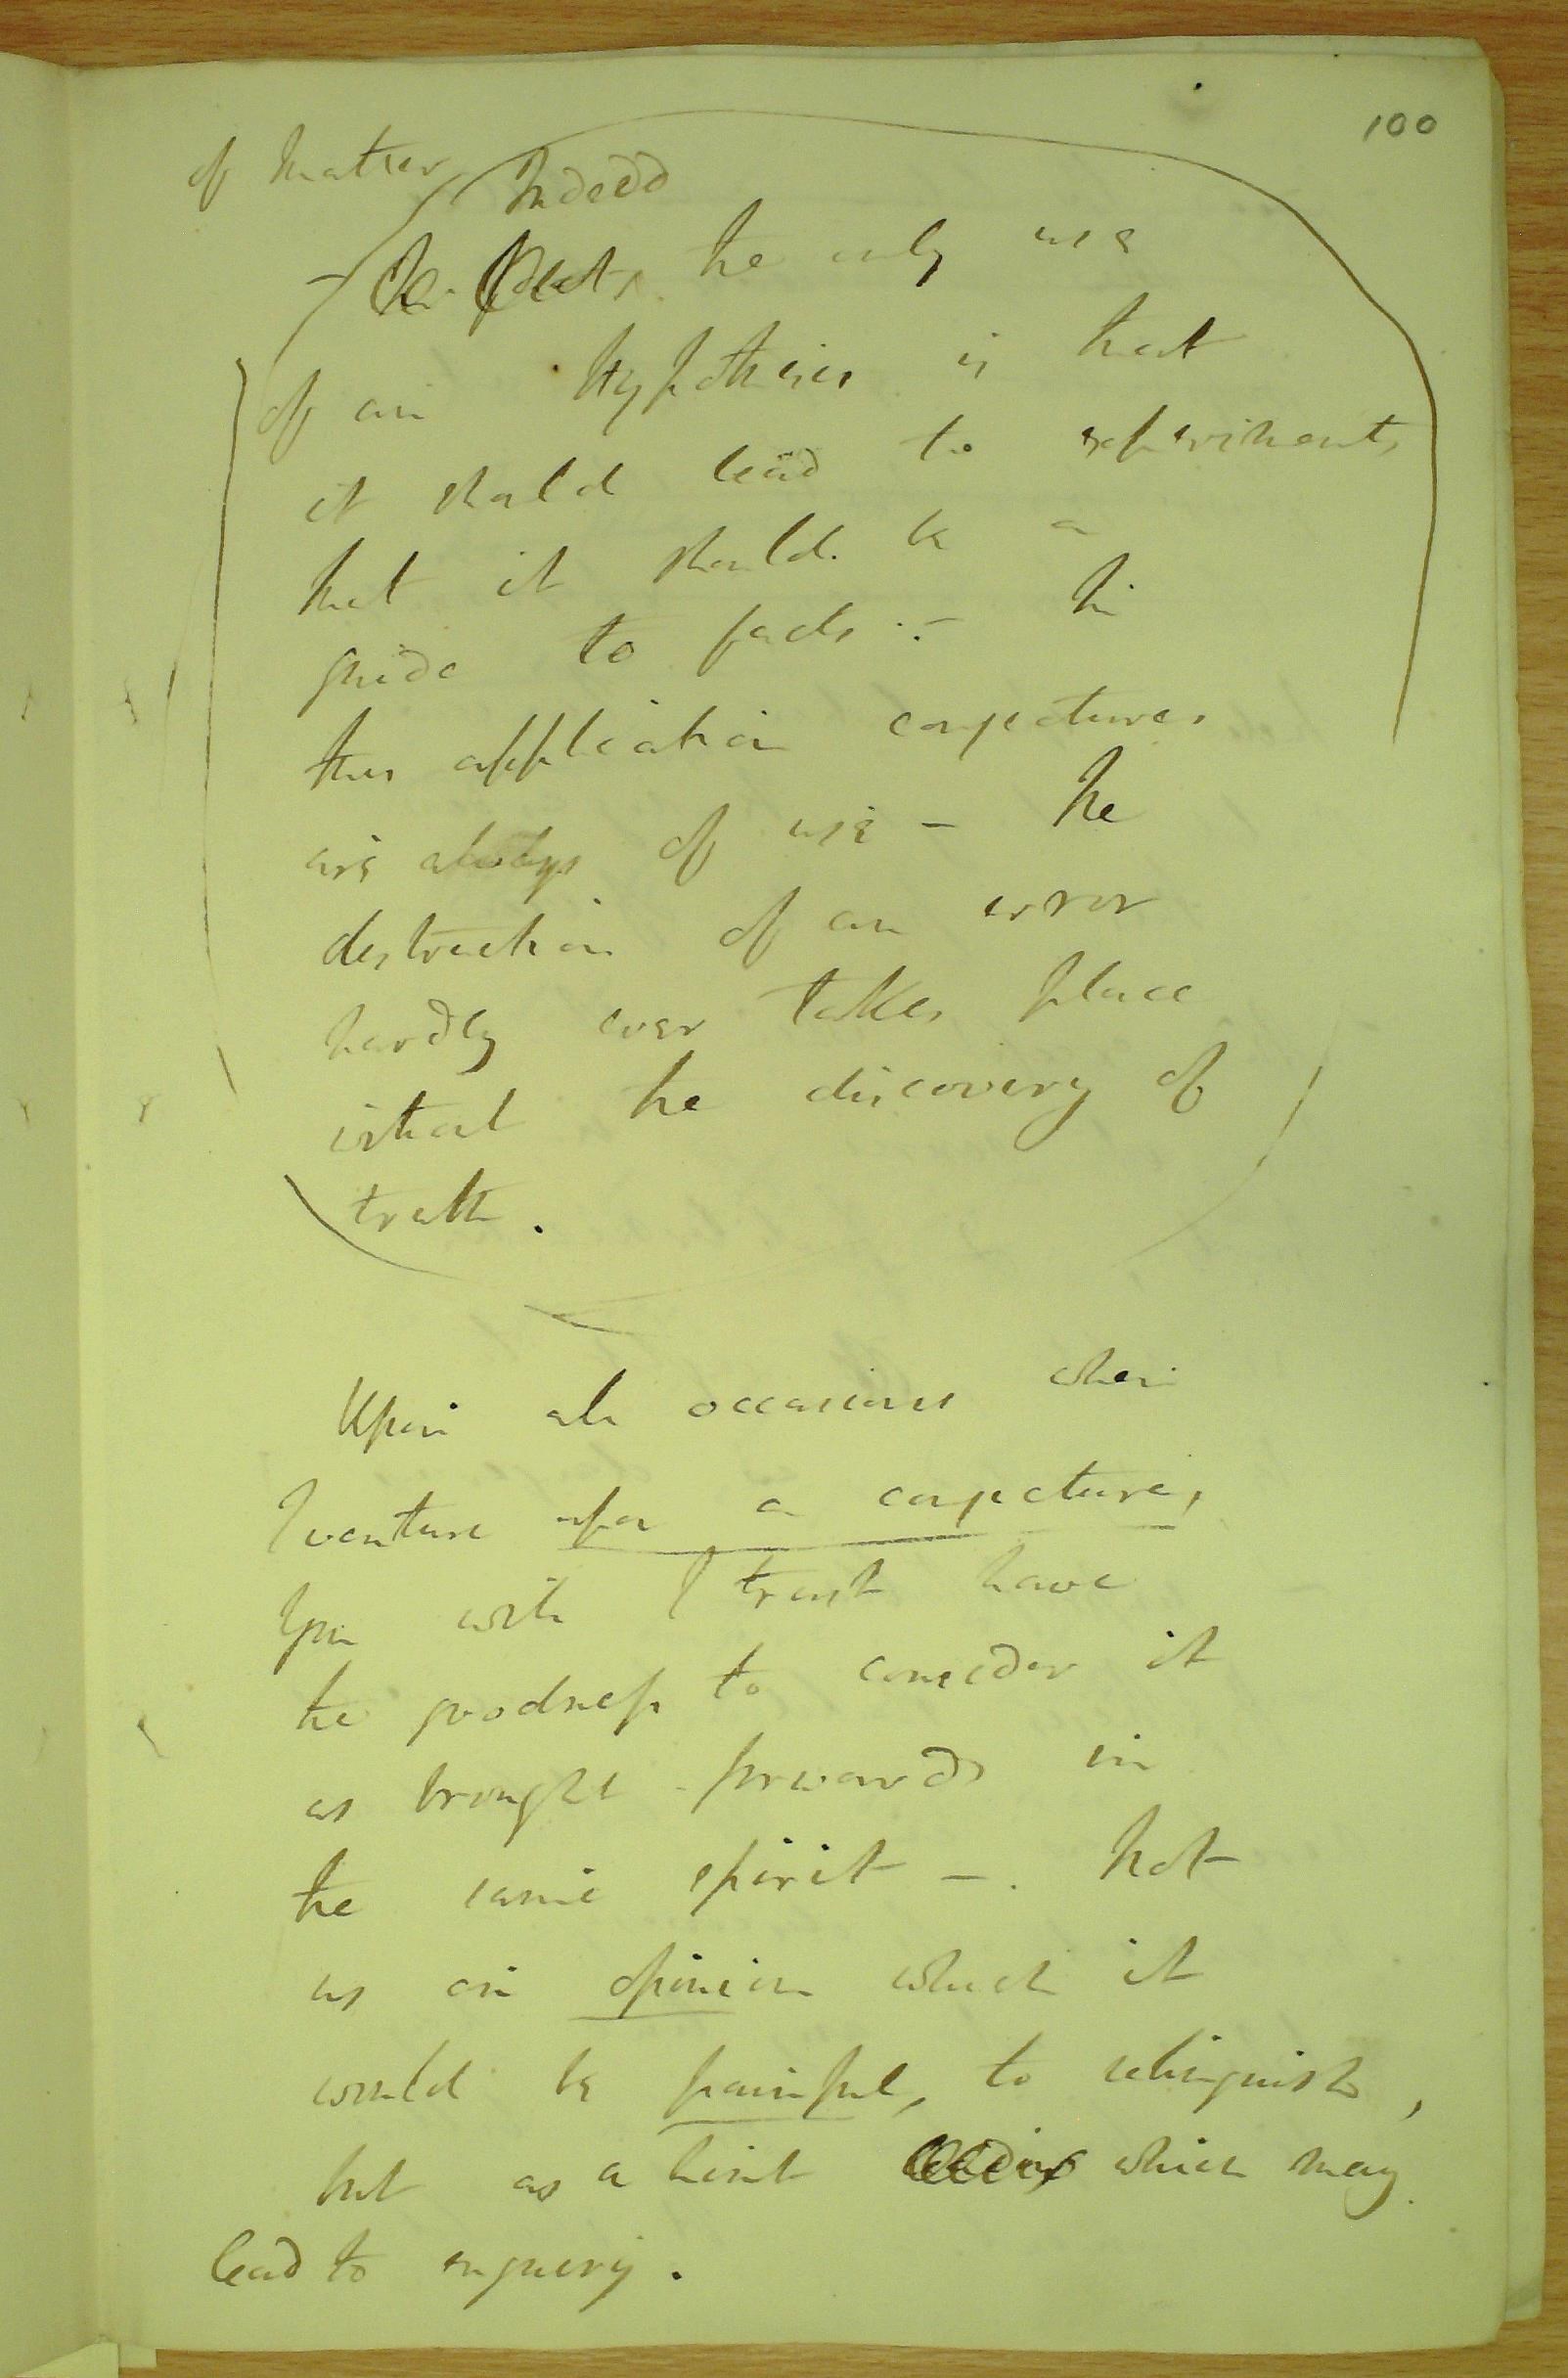 100
of matter Indeed
- In fact, the only use
of an Hypothesis is that
it should lead to experiments,
that it should be a
guide to facts :- In
this application conjectures
are always of use - The
destruction of an error
hardly ever takes place
without the discovery of
truth.
Upon all occasions when
I venture upon a conjecture,
You will I trust have
the goodness to consider it
as brought forwards in
the same spirit -. Not
as an opinion which it
would be painful, to relinquish,
but as a hint leading which may
lead to enquiry.